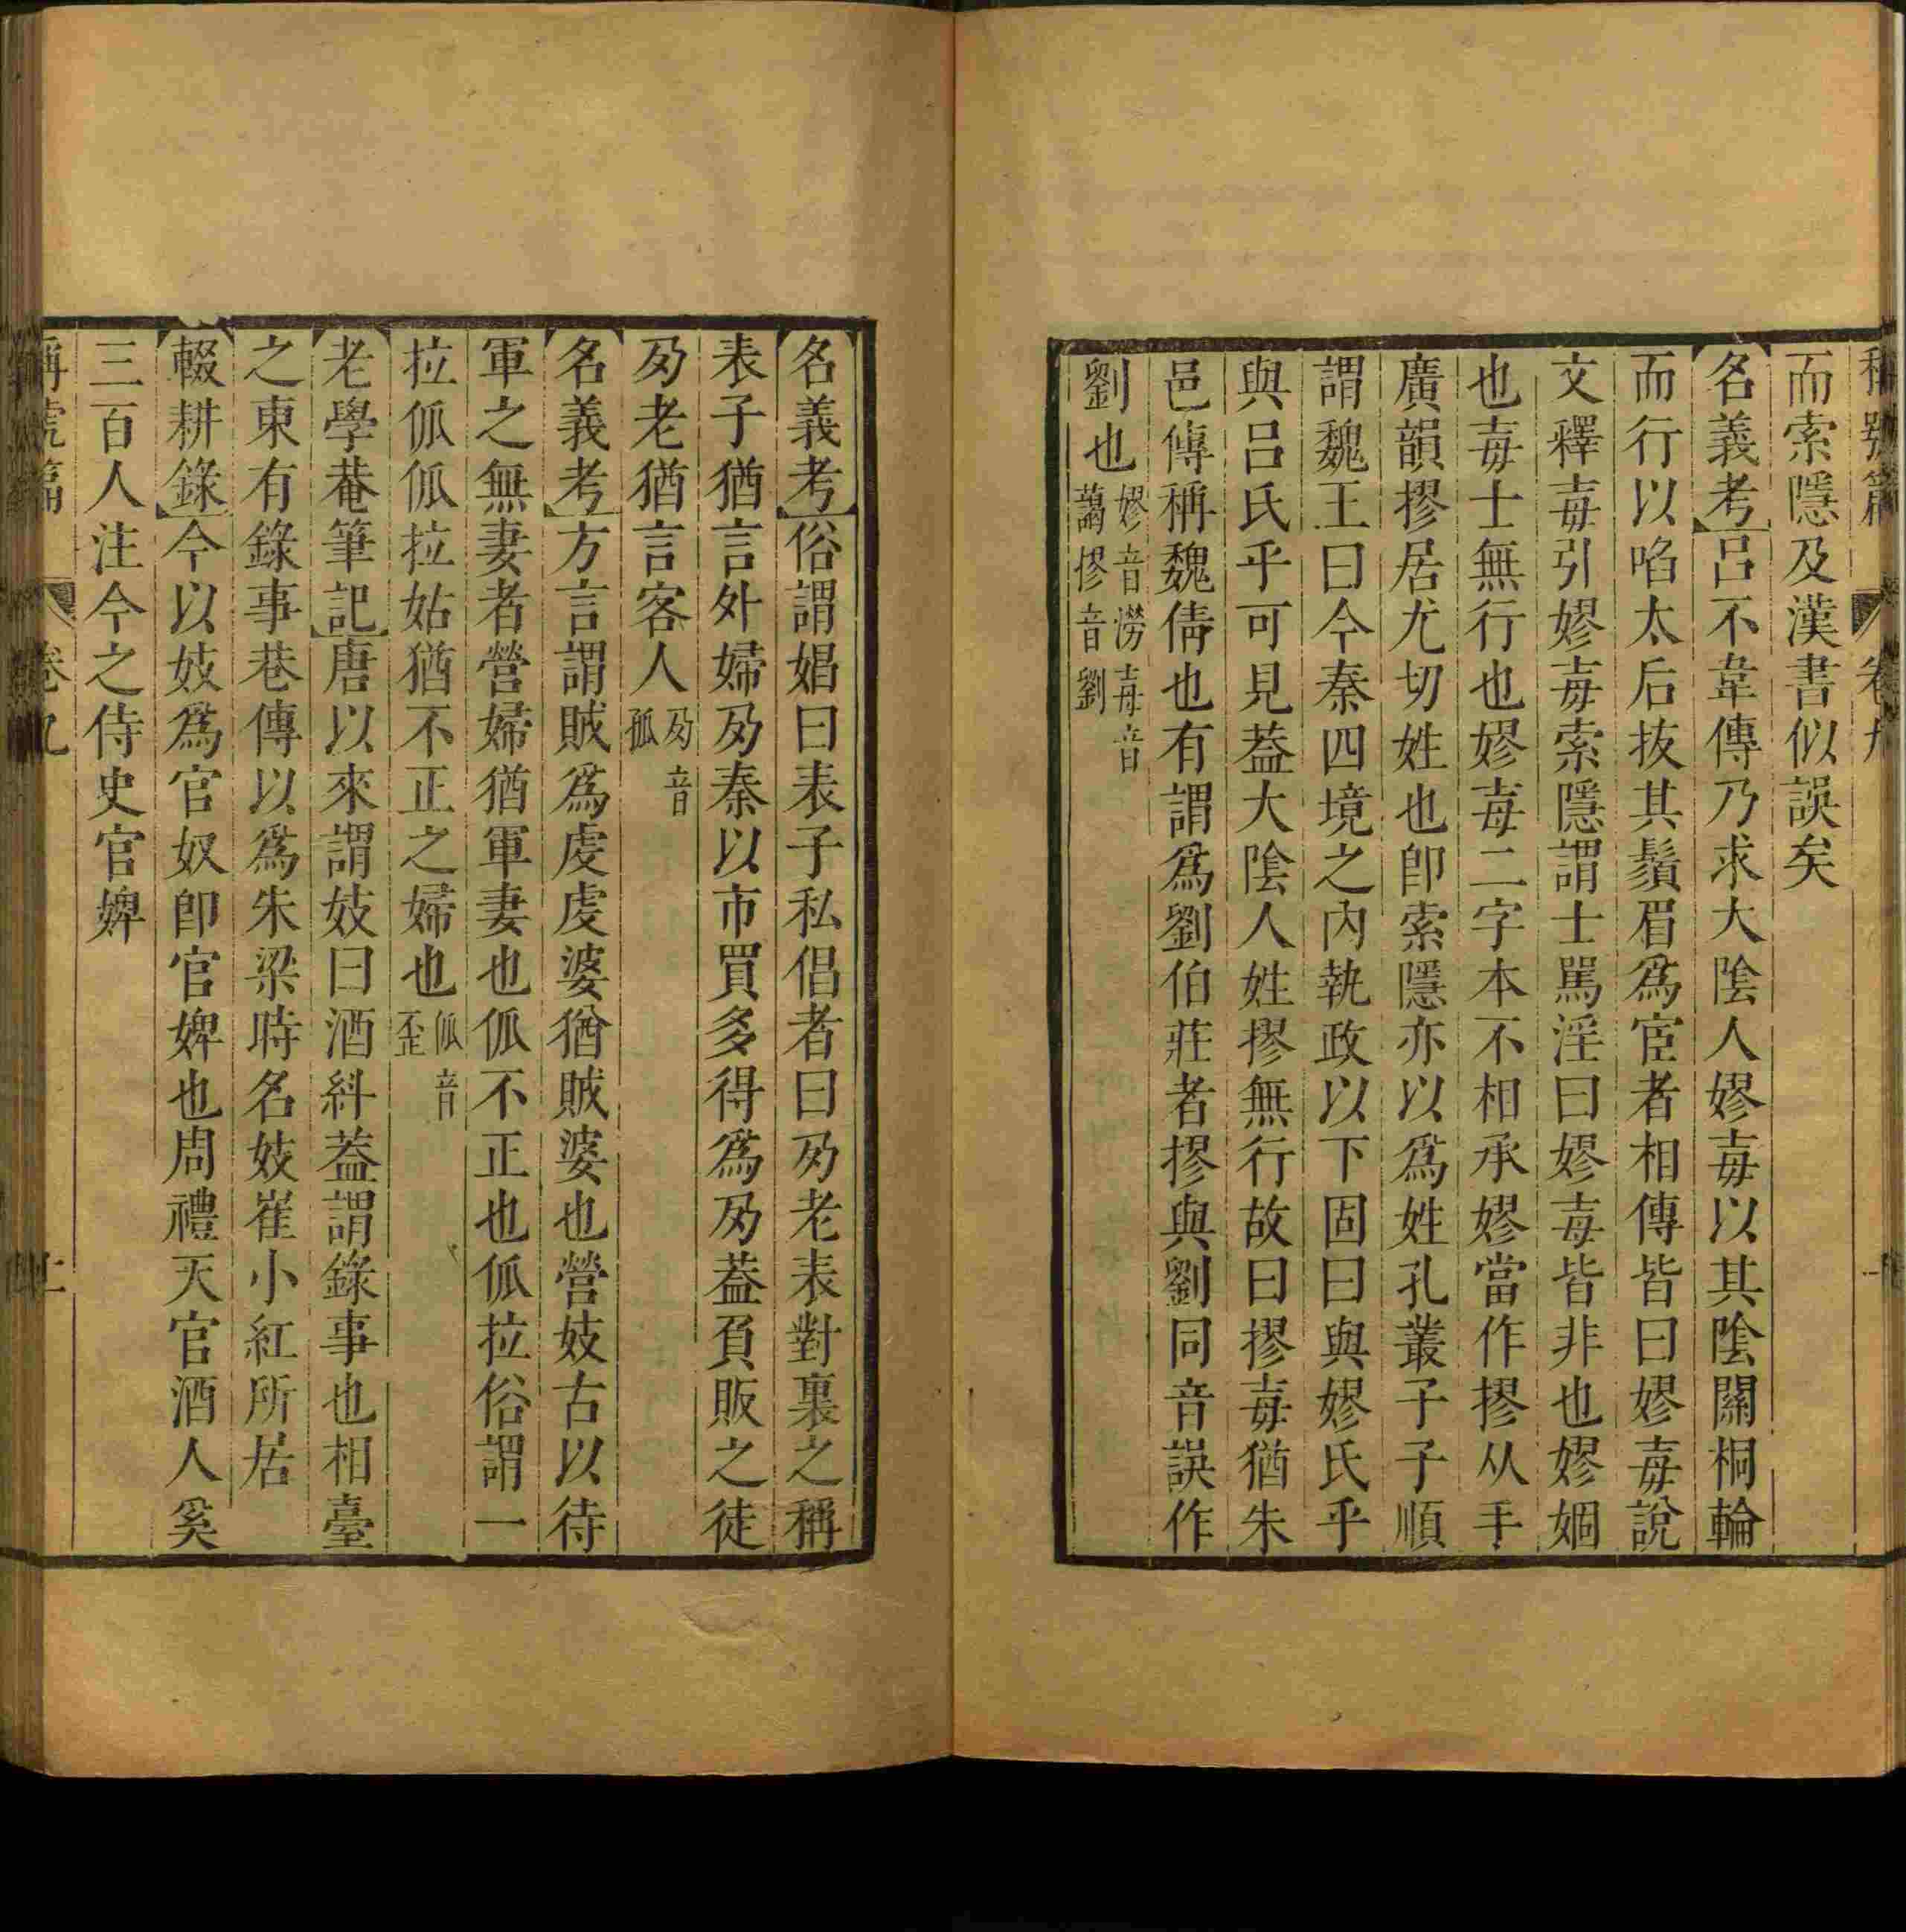 稱號篇　卷九
而索隱及漢書似誤矣
名義考呂不韋傳乃求大陰人嫪毐以其陰關桐輪
而行以啗太后抜其鬚眉爲宦者相傳皆曰嫪毐說
文釋毐引嫪毐索隱謂士罵淫曰嫪毐皆非也嫪婟
也毐士無行也嫪毐二字本不相承嫪當作摎从手
廣韻摎居尤切姓也卽索隱亦以爲姓孔叢子子順
謂魏王曰今秦四境之內執政以下固曰與嫪氏乎
與呂氏乎可見葢大陰人姓摎無行故曰摎毐猶朱
邑傳稱魏倩也有謂爲劉伯莊者摎與劉同音誤作
劉也嫪音澇毐音藹摎音劉
名義考俗謂娼曰表子私倡者曰夃老表對裏之稱
表子猶言外婦夃秦以市買多得爲夃葢負販之徒
夃老猶言客人夃音孤
名義考方言謂賊爲虔虔婆猶賊婆也營妓古以待
軍之無妻者營婦猶軍妻也㐓不正也㐓拉俗謂一
拉㐓㐓拉姑猶不正之婦也㐓音歪
老學菴筆記唐以來謂妓曰酒糾葢謂錄事也相臺
之東有錄事巷傳以爲朱梁時名妓崔小紅所居
輟耕錄今以妓爲官奴卽官婢也周禮天官酒人奚
三百人注今之侍史官婢
稱號篇　卷九